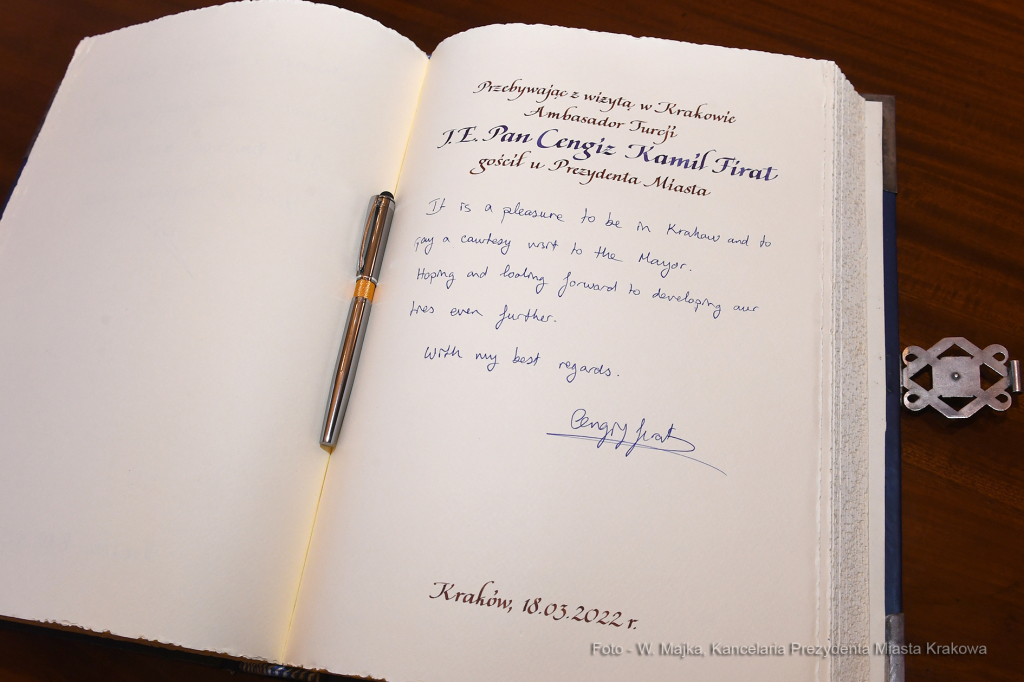 Przebywając z wizytą w Krakowie
Ambasador Turcji
J.E. Pan Cengiz Kamil Fırat
gościł u Prezydenta Miasta
It is a pleasure to be in Krakow and to
pay a courtesy visit to the Mayor.
Hoping and looking forward to developing our
ties even further.
With my best regards.
Cengiz Fırat
Kraków, 18.03.2022 r.
Foto - W. Majka, Kancelaria Prezydenta Miasta Krakowa